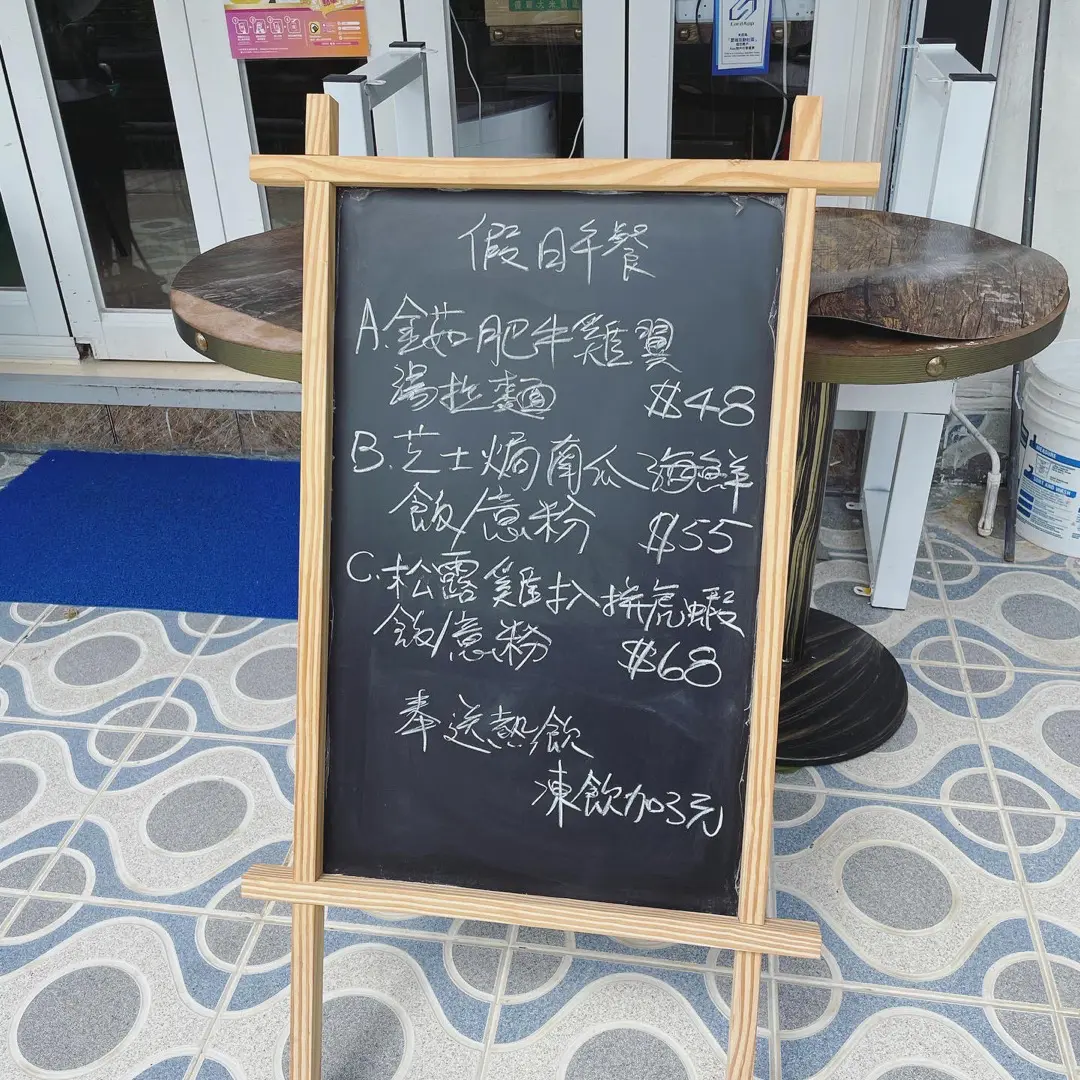 假日午餐
A.金菇肥牛雞翼
湯拉麵 $48
B.芝士焗南瓜海鮮
飯/意粉 $55
C.松露雞扒拼虎蝦
飯/意粉 $68
奉送熱飲
凍飲加3元